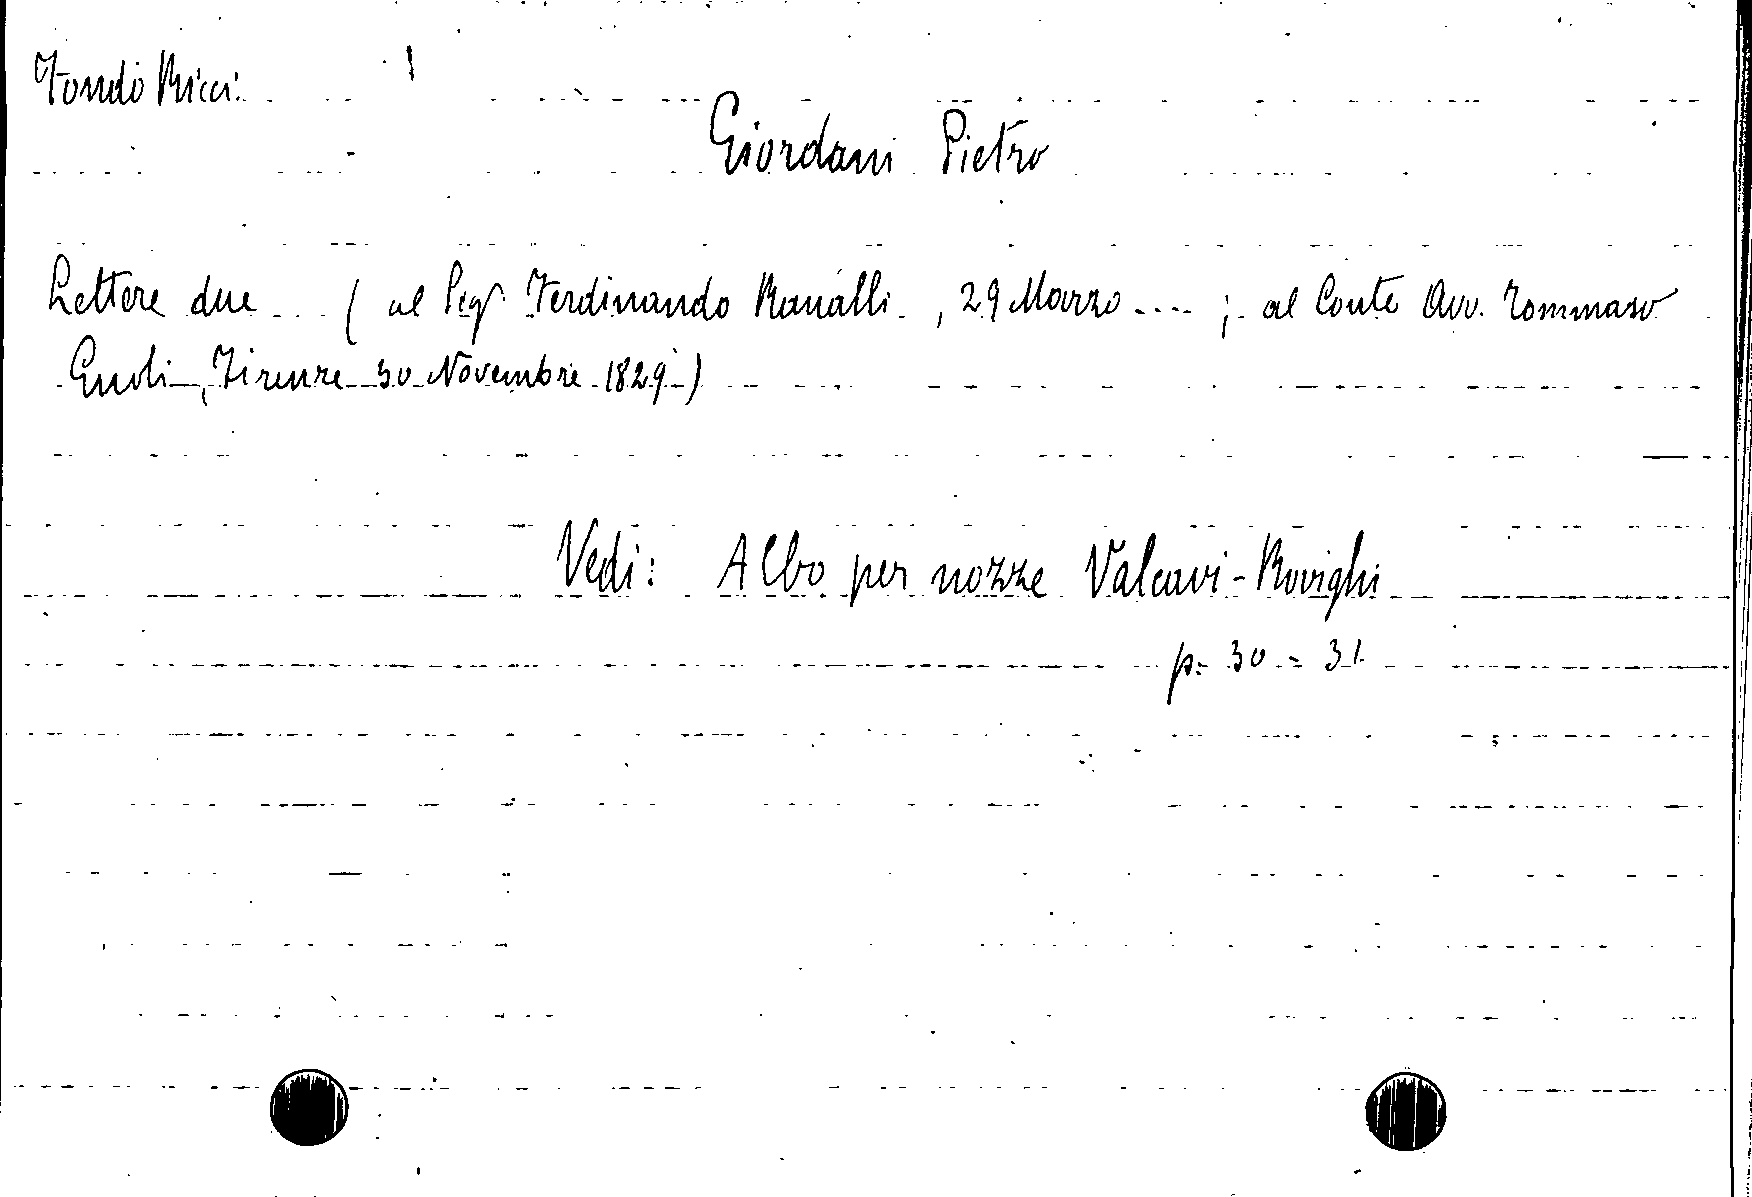 Fondo Ricci.
Giordani Pietro
Lettere due ( al Sigr Ferdinando Ranalli , 29 Marzo .... ; al Conte Avv. Tommaso
Gnoli , Firenze 30 Novembre 1829 )
Vedi: Albo per nozze Valcavi - Rovighi
p. 30 - 31